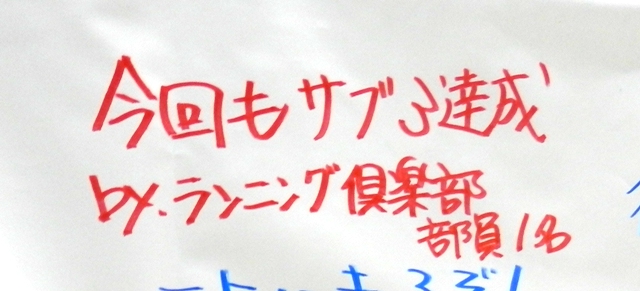 今回もサブ3達成
by.ランニング倶楽部
部員1名